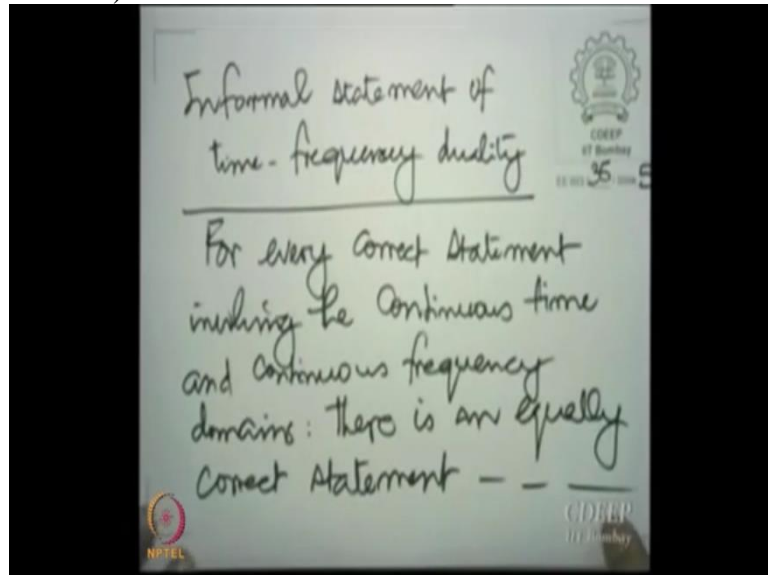 Informal statement of
time-frequency duality
For every correct statement
involving the continuous time
and continuous frequency
domains: there is an equally
correct statement - - —
CDEEP
IIT Bombay
36
5
NPTEL
CDEEP
IIT Bombay